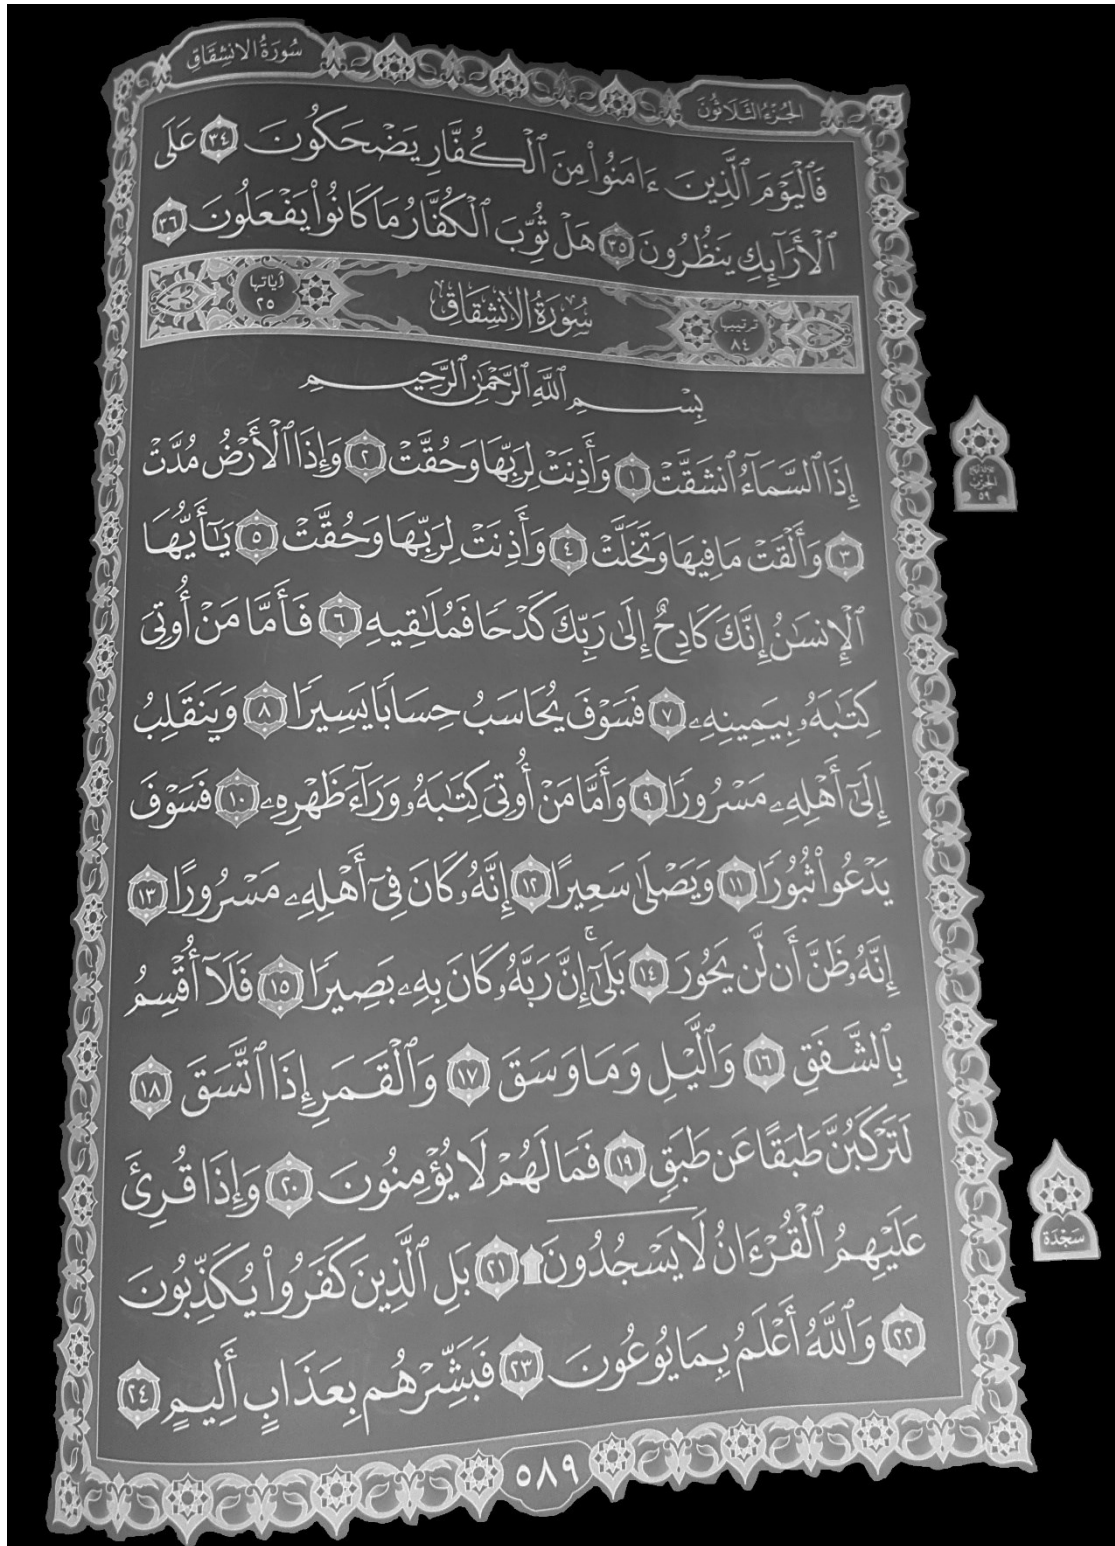 سُورَةُ الانشِقَاقِ
الجُزءُ الثَّلَاثُونَ
فَٱلْيَوْمَ ٱلَّذِينَ ءَامَنُوا۟ مِنَ ٱلْكُفَّارِ يَضْحَكُونَ ٣٤ عَلَى
ٱلْأَرَآئِكِ يَنظُرُونَ ٣٥ هَلْ ثُوِّبَ ٱلْكُفَّارُ مَا كَانُوا۟ يَفْعَلُونَ ٣٦
ترتيبها ٨٤ سُورَةُ الانشِقَاقِ آياتها ٢٥
بِسْمِ ٱللَّهِ ٱلرَّحْمَٰنِ ٱلرَّحِيمِ
إِذَا ٱلسَّمَآءُ ٱنشَقَّتْ ١ وَأَذِنَتْ لِرَبِّهَا وَحُقَّتْ ٢ وَإِذَا ٱلْأَرْضُ مُدَّتْ
٣ وَأَلْقَتْ مَا فِيهَا وَتَخَلَّتْ ٤ وَأَذِنَتْ لِرَبِّهَا وَحُقَّتْ ٥ يَٰٓأَيُّهَا
ٱلْإِنسَٰنُ إِنَّكَ كَادِحٌ إِلَىٰ رَبِّكَ كَدْحًا فَمُلَٰقِيهِ ٦ فَأَمَّا مَنْ أُوتِىَ
كِتَٰبَهُۥ بِيَمِينِهِۦ ٧ فَسَوْفَ يُحَاسَبُ حِسَابًا يَسِيرًا ٨ وَيَنقَلِبُ
إِلَىٰٓ أَهْلِهِۦ مَسْرُورًا ٩ وَأَمَّا مَنْ أُوتِىَ كِتَٰبَهُۥ وَرَآءَ ظَهْرِهِۦ ١٠ فَسَوْفَ
يَدْعُوا۟ ثُبُورًا ١١ وَيَصْلَىٰ سَعِيرًا ١٢ إِنَّهُۥ كَانَ فِىٓ أَهْلِهِۦ مَسْرُورًا ١٣
إِنَّهُۥ ظَنَّ أَن لَّن يَحُورَ ١٤ بَلَىٰٓۚ إِنَّ رَبَّهُۥ كَانَ بِهِۦ بَصِيرًا ١٥ فَلَآ أُقْسِمُ
بِٱلشَّفَقِ ١٦ وَٱلَّيْلِ وَمَا وَسَقَ ١٧ وَٱلْقَمَرِ إِذَا ٱتَّسَقَ ١٨
لَتَرْكَبُنَّ طَبَقًا عَن طَبَقٍ ١٩ فَمَا لَهُمْ لَا يُؤْمِنُونَ ٢٠ وَإِذَا قُرِئَ
عَلَيْهِمُ ٱلْقُرْءَانُ لَا يَسْجُدُونَ ۩ ٢١ بَلِ ٱلَّذِينَ كَفَرُوا۟ يُكَذِّبُونَ
٢٢ وَٱللَّهُ أَعْلَمُ بِمَا يُوعُونَ ٢٣ فَبَشِّرْهُم بِعَذَابٍ أَلِيمٍ ٢٤
٥٨٩
الحزب
٥٩
سَجْدَة